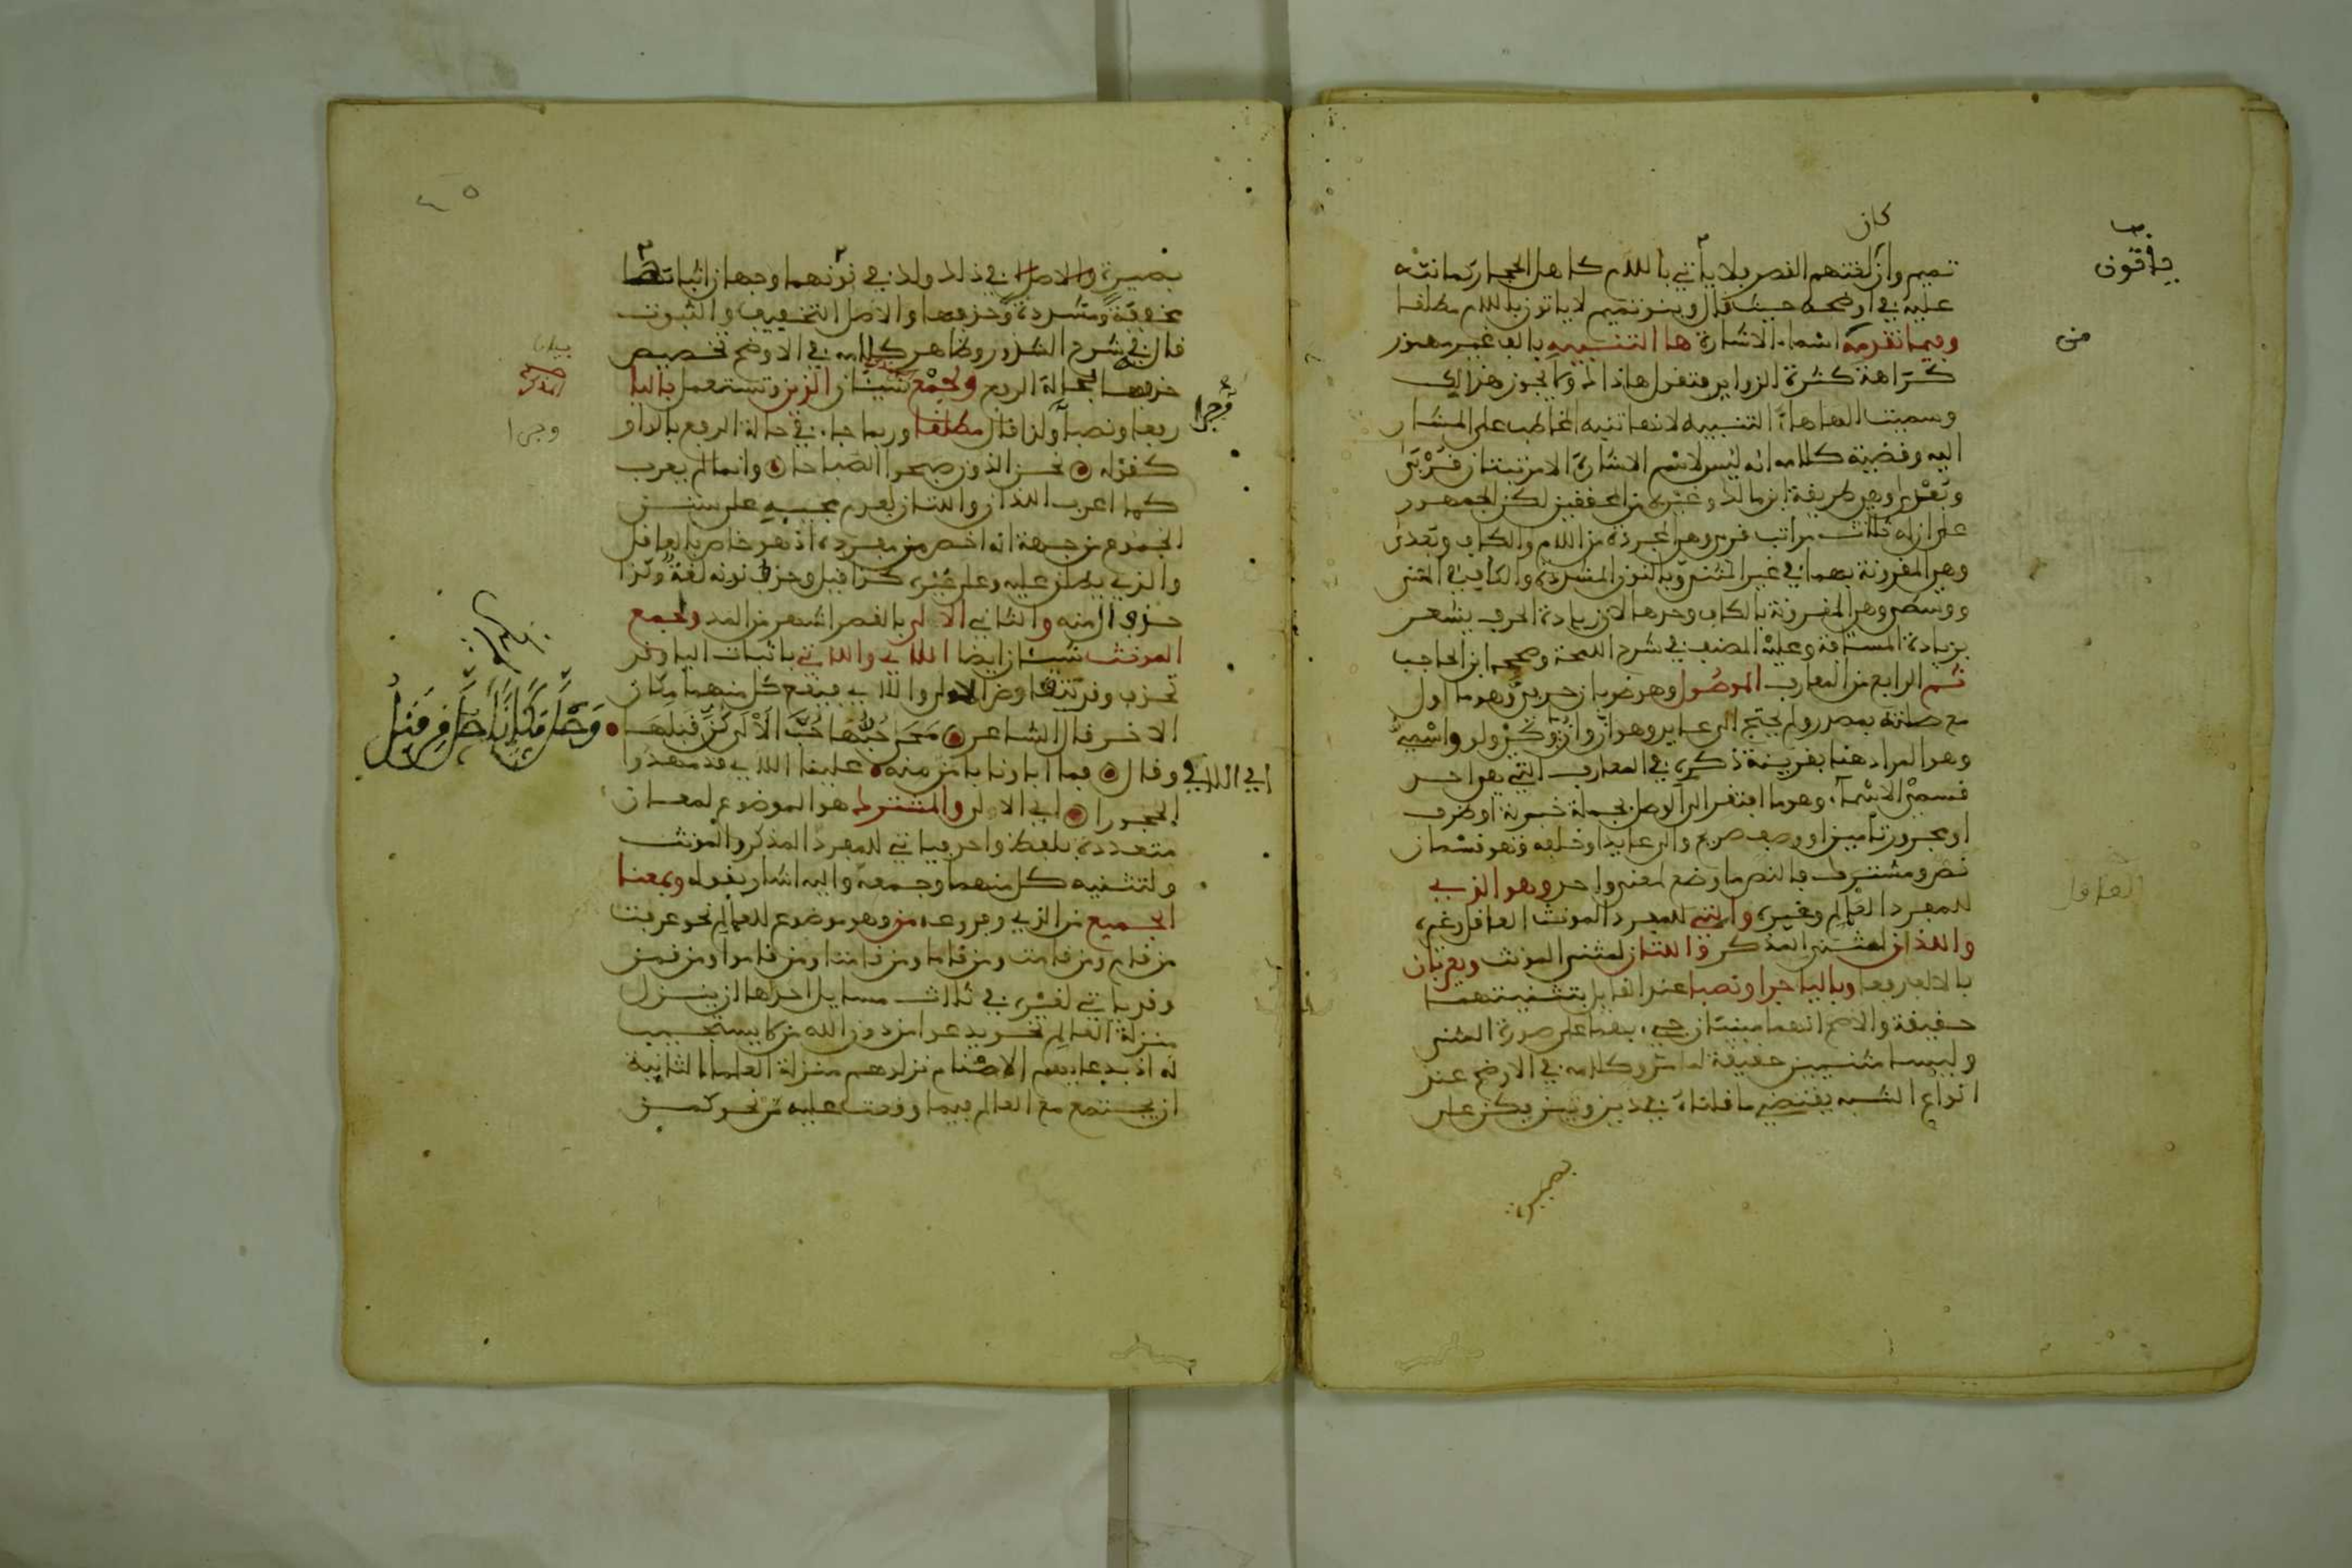 كان
تميم وان لغتهم القصر بلا ياتي باللام كاهل الحجاز كما نبه
عليه في اوضحه حيث قال وبنو تميم لا ياتون باللام مطلقا
وفيما تقدمه اسماء الاشارة ها التنبيه بالف غير مهموز
كراهة كثرة الزوايد فتقول هاذا لا يجوز هذالك
وسميت الهاء هاء التنبيه لانها تنبه المخاطب على المشار
اليه وقضية كلامه انه ليس لاسم الاشارة الا مرتبتان قربى
وبعدى وهي طريقة ابن مالك وغيره من المحققين لكن الجمهور
على ان له ثلاث مراتب قربى وهي المجردة من اللام والكاف وبعدى
وهي المقرونة بهما في غير المثنى وبالنون المشددة والكاف في المثنى
ووسطى وهي المقرونة بالكاف وحدها لان زيادة الحرف يشعر
بزيادة المسافة وعليه المصنف في شرح اللمحة وصححه ابن الحاجب
ثم الرابع من المعارف الموصول وهو ضربان حرفي وهو ما اول
مع صلته بمصدر ولم يحتج الى عايد وهو ان وان وما وكي ولو واسمي
وهو المراد هنا بقرينة ذكره في المعارف التي هي احد
قسمي الاسماء وهو ما افتقر الى الوصل بجملة خبرية او ظرف
او مجرور تامين او وصف صريح والى عايد او خلفه وهو قسمان
نص ومشترك فالنص ما وضع لمعنى واحد وهو الذي
للمفرد العالم وغيره والتي للمفرد المونث العاقل وغيره
واللذان لمثنى المذكر واللتان لمثنى المونث ويعربان
بالالف رفعا وباليا جرا ونصبا عند القايل بتثنيتهما
حقيقة والاصح انهما مبنيتان جيء بهما على صورة المثنى
وليسا مثنيين حقيقة لما مر وكلامه في الاوضح عند
انواع الشبه يقتضي ما قلناه في ذين وتين يكن على
بصيرة
يا قون
من
العاقل
بصيرة والاصل في ذلك ولك في نونهما وجهان اثباتها
مخففة ومشددة وحذفها والاصل التخفيف والثبوت
قال في شرح الشذور وظاهر كلامه في الاوضح تخصيص
حذفها بحالة الرفع ولجمع الذين وتستعمل باليا
رفعا ونصبا ولذا قال مطلقا وربما جاء في حالة الرفع بالواو
كقوله نحن الذون صبحوا الصباحا وانما لم يعرب
كما اعرب اللذان واللتان لعدم مجييه على سنن
الجموع من جهة انه اخص من مفرده اذ هو خاص بالعاقل
والذي يطلق عليه وعلى غيره كذا قيل وحذف نونه لغة وكذا
حذف ال منه والثاني الالى بالقصر اشهر من المد ولجمع
المونث شيئان ايضا اللاي واللاتي باثبات اليا وقد
تحذف وقد يتقارض الالى واللاي فيقع كل منهما مكان
الاخر قال الشاعر محى حبها حب الالى كن قبلها
وقال فما اباونا بامن منه علينا اللاي قد مهدوا
الحجورا اي الالى والمشترك هو الموضوع لمعان
متعددة بلفظ واحد فياتي للمفرد المذكر والمونث
ولتثنيه كل منهما وجمعه واليه اشار بقوله وبمعنا
الجميع من الذي وفروعه من وهو موضوع للعالم نحو عرفت
من قام ومن قامت ومن قاما ومن قامتا ومن قاموا ومن قمن
وقد ياتي لغيره في ثلاث مسايل احداها ان ينزل
منزلة العالم نحو يدعوا من دون الله من لا يستجيب
له اذ بدعايهم الاصنام نزلوهم منزلة العلماء الثانية
ان يجتمع مع العالم فيما وقعت عليه من نحو كمن
وجرا
بيان
المذكر
وجرا
وحلت مكانا لم يكن حل من قبل
اي اللاتي